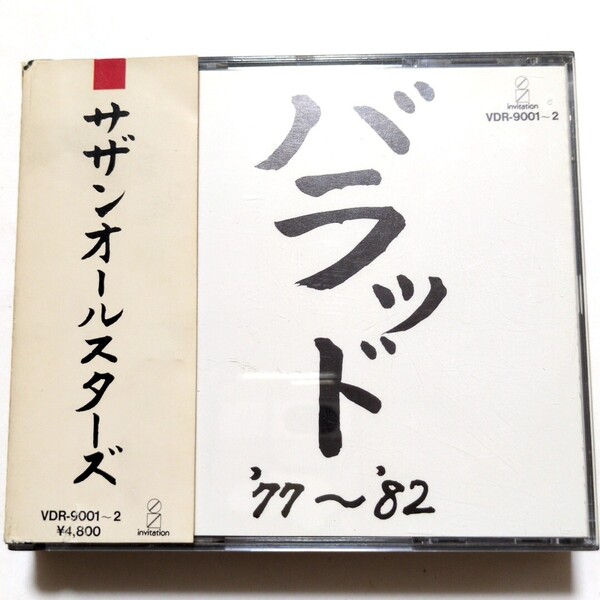 サザンオールスターズ
VDR-9001~2
¥4,800
invitation
バラッド
'77~'82
invitation
VDR-9001~2